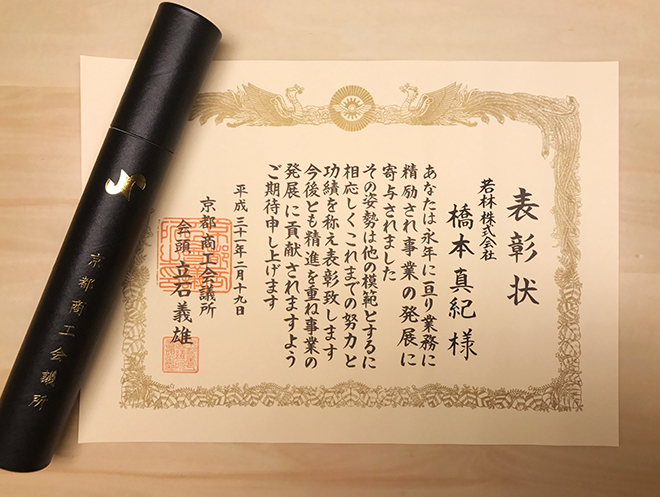 表彰状
若林株式会社
橋本真紀様
あなたは永年に亘り業務に
精励され事業の発展に
寄与されました
その姿勢は他の模範とするに
相応しくこれまでの努力と
功績を称え表彰致します
今後とも精進を重ね事業の
発展に貢献されますよう
ご期待申し上げます
平成三十一年二月十九日
京都商工会議所
会頭 立石義雄
京都商工会議所